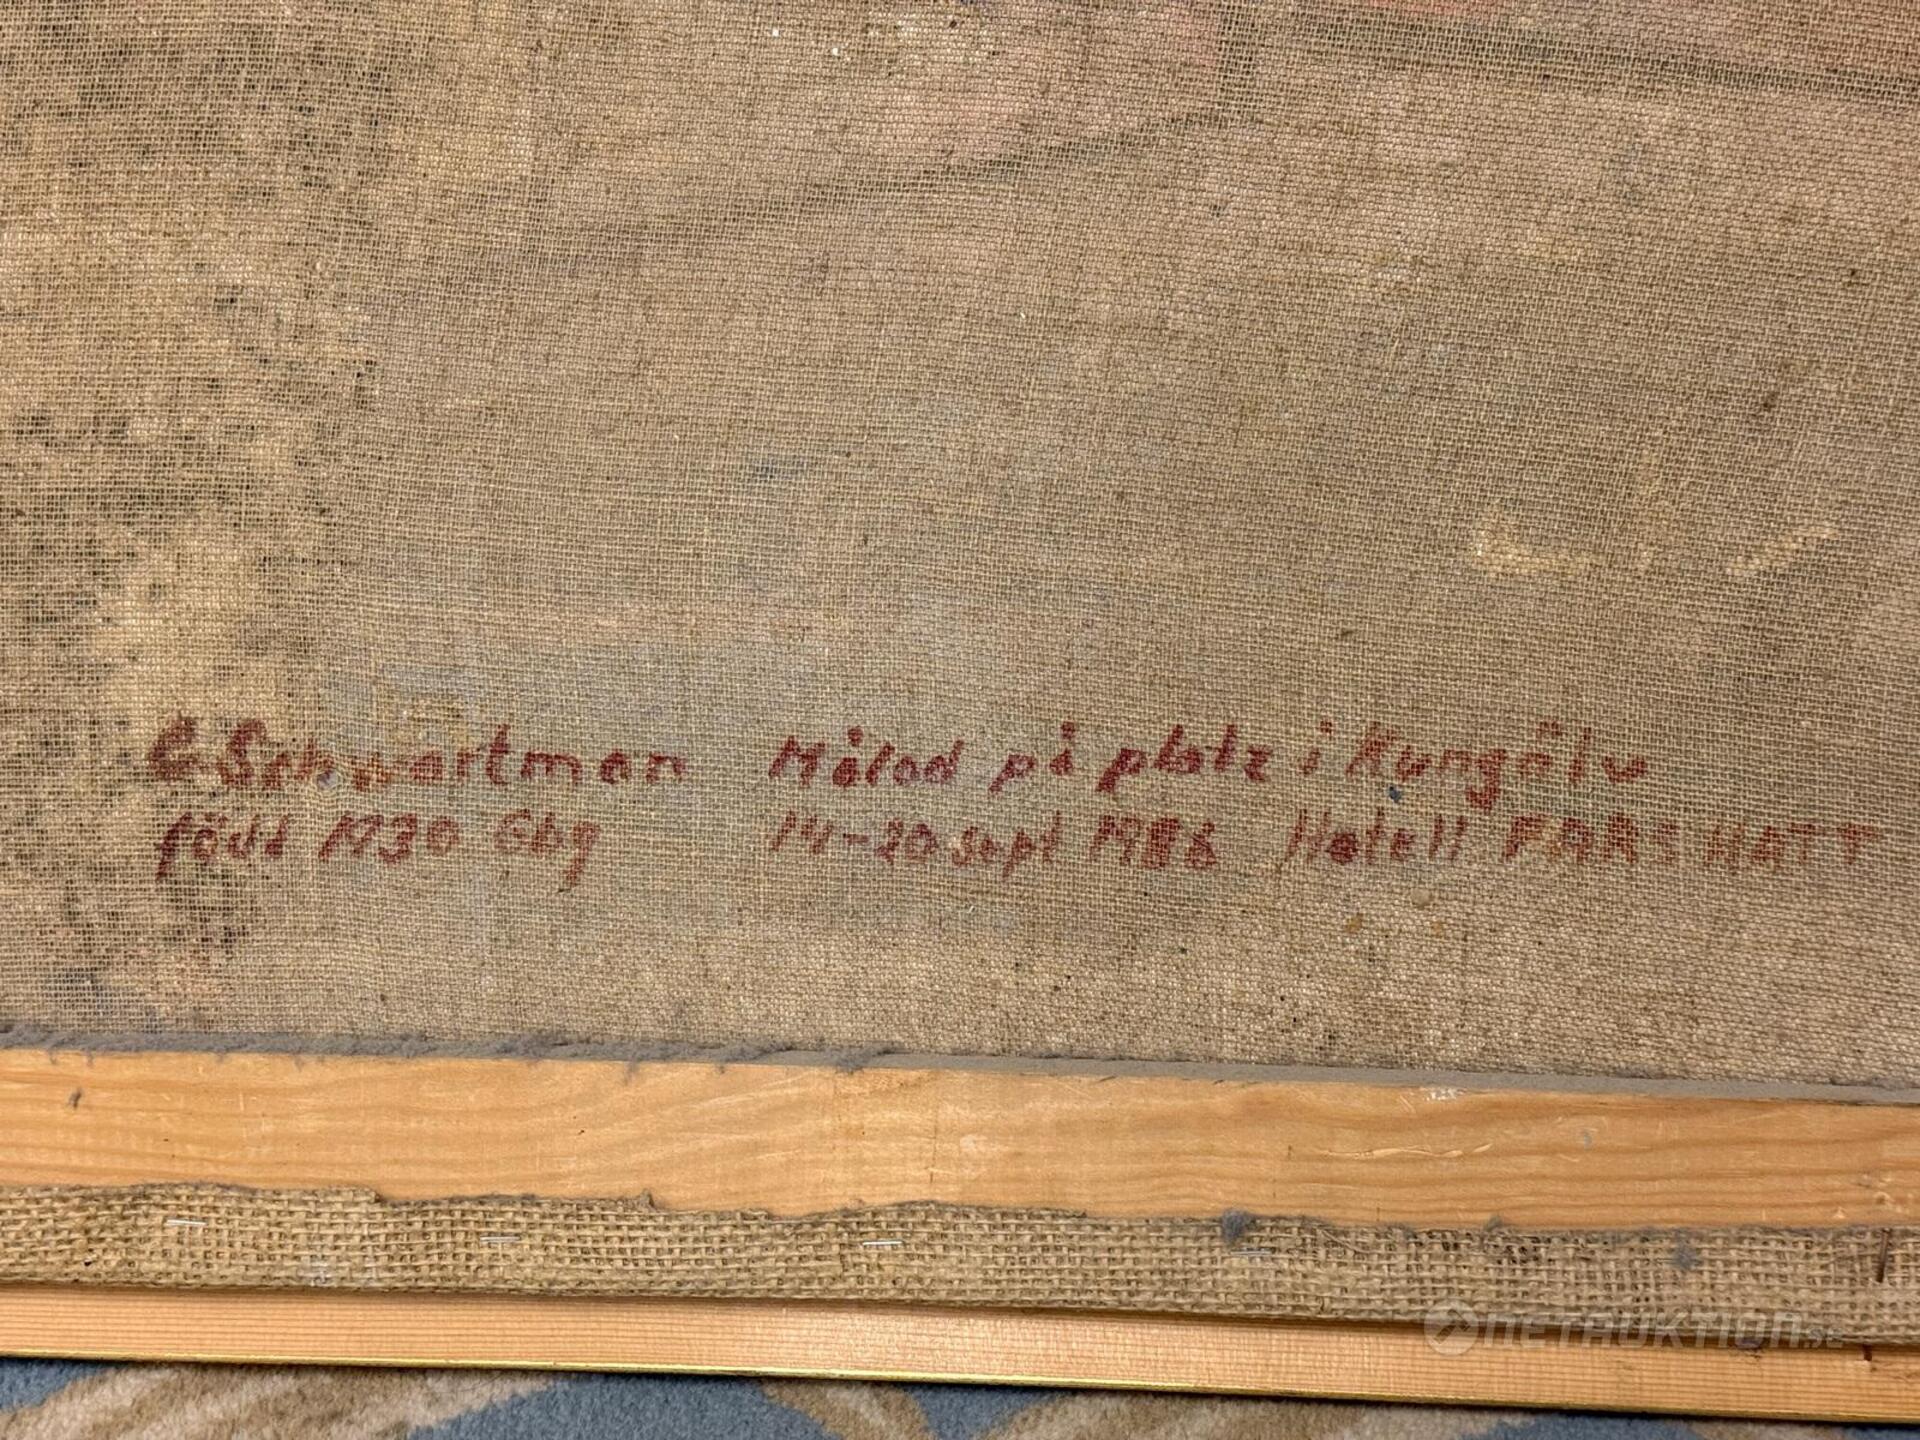 G Schwartman Målad på platz i Kungälv
född 1930 Gbg 14-20 sept 1986 Hotell FARS HATT
NETAUKTION.SE